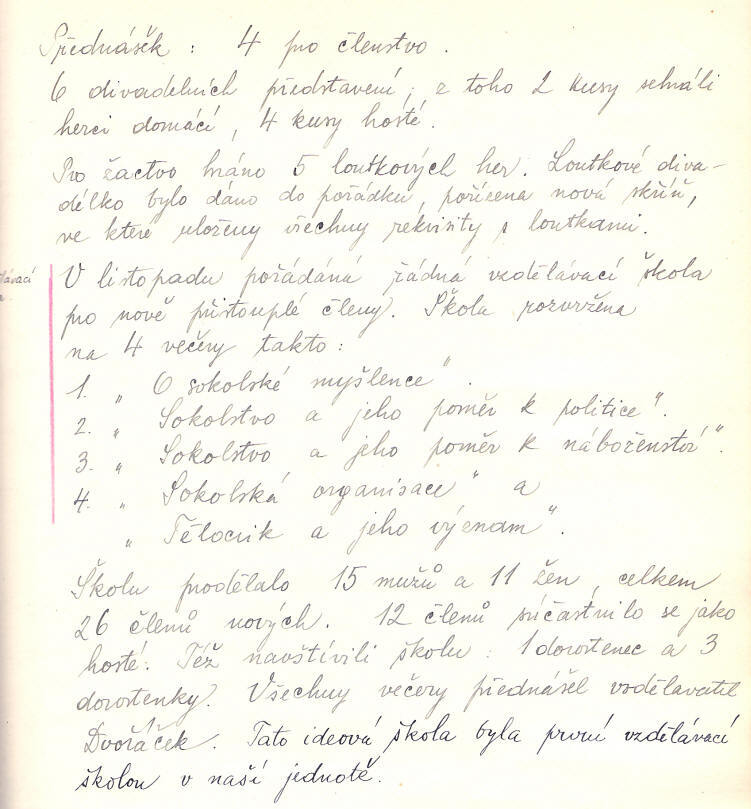 Přednášek : 4 pro členstvo .
6 divadelních představení, z toho 2 kusy sehráli
herci domácí, 4 kusy hosté.
Pro žactvo hráno 5 loutkových her. Loutkové diva-
délko bylo dáno do pořádku, pořízena nová skříň,
ve které uloženy všechny rekvisity s loutkami.
V listopadu pořádána řádná vzdělávací škola
pro nově přistouplé členy. Škola rozvržena
na 4 večery takto :
1. „ O sokolské myšlence " .
2. „ Sokolstvo a jeho poměr k politice ".
3. „ Sokolstvo a jeho poměr k náboženství ".
4. „ Sokolská organisace " a
„ Tělocvik a jeho význam ".
Školu prodělalo 15 mužů a 11 žen, celkem
26 členů nových. 12 členů súčastnilo se jako
hosté. Též navštívili školu : 1 dorostenec a 3
dorostenky. Všechny večery přednášel vzdělavatel
Dvořáček. Tato ideová škola byla první vzdělávací
školou v naší jednotě.